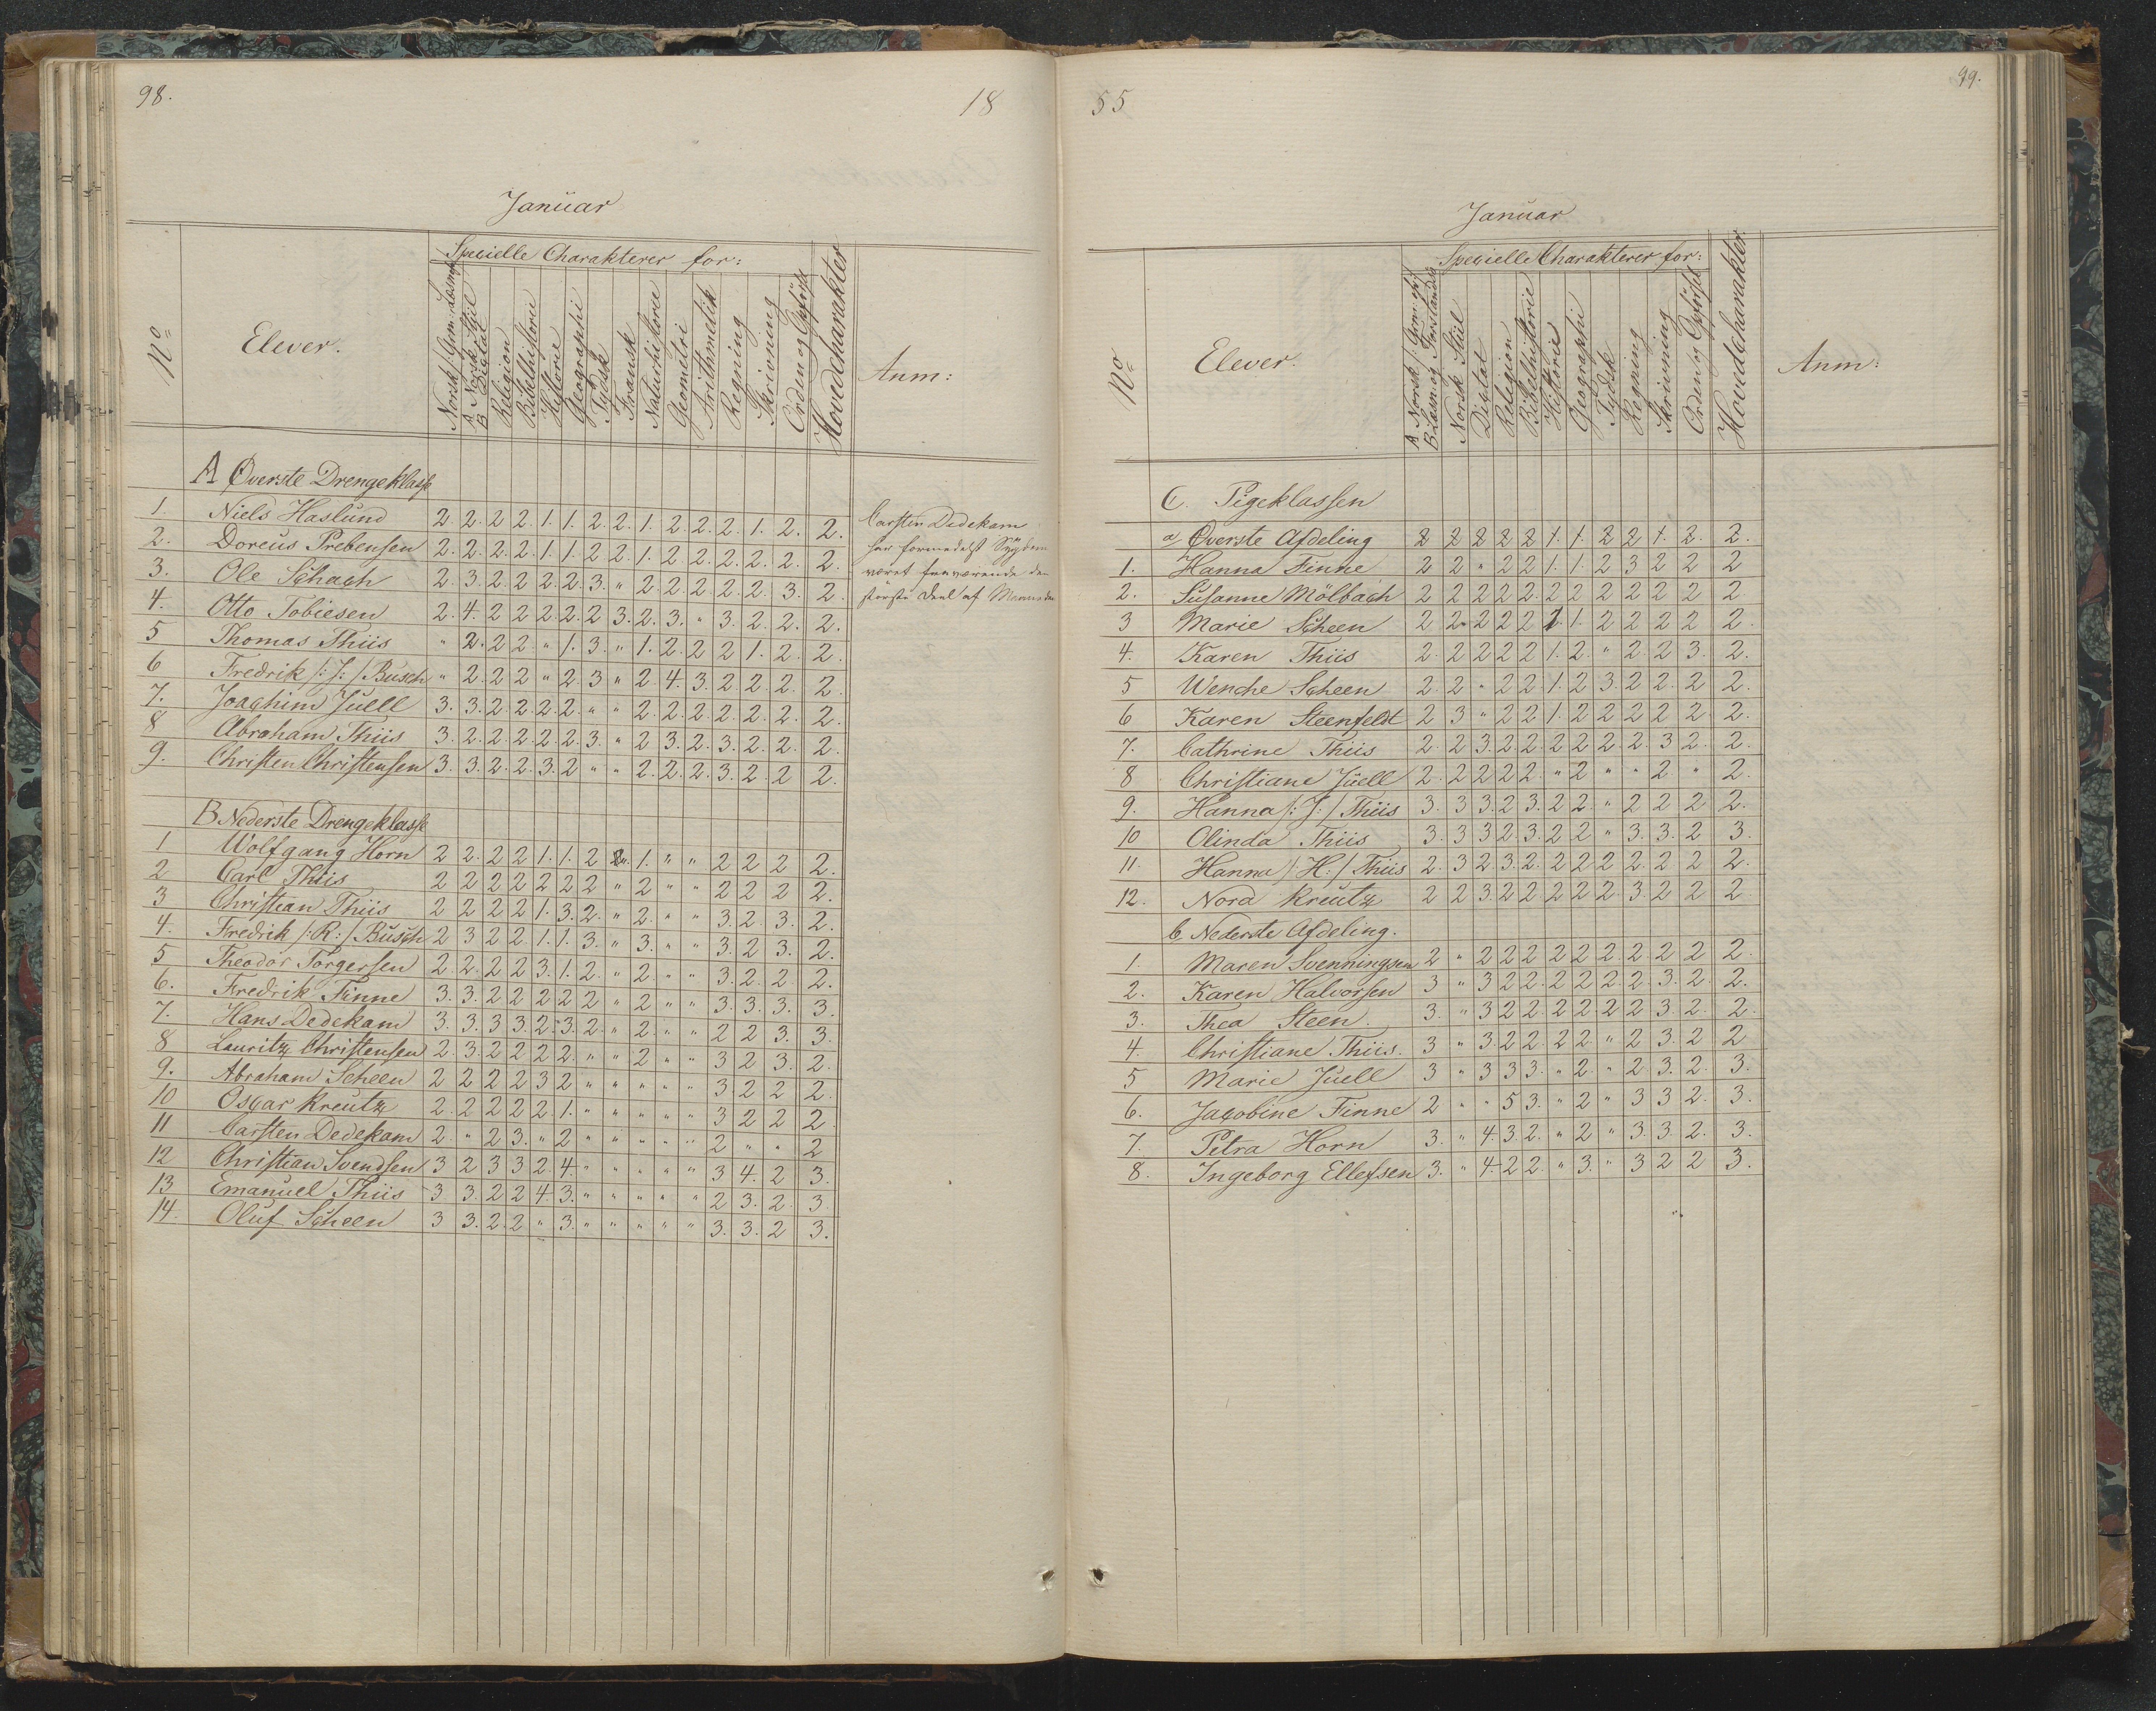 98.
18
Januar
Specielle Charakterer for:
No
Elever.
Norsk /: Gram: Læsn:
A Norsk Stiil
B Diktat
Religion
Bibelhistorie
Historie
Geographi
Tydsk
Fransk
Naturhistorie
Geometri
Arithmetik
Regning
Skrivning
Orden og Opførsel
Hovedcharakter
Anm:
A Øverste Drengeklasse
1. Niels Haslund 2. 2. 2 2. 1. 1. 2. 2. 1. 2. 2. 2. 1. 2. 2.
2. Doreus Prebensen 2. 2. 2. 2. 1. 1. 2 2. 1. 2. 2. 2. 2. 2. 2.
3. Ole Schach 2. 3. 2 2 2. 2. 3. " 2. 2. 2. 2. 2. 3. 2.
4. Otto Tobiesen 2. 4. 2 2 2. 2. 2 3. 2. 3. " 3. 2. 2. 2.
5 Thomas Thiis " 2. 2 2. " 1. 3. " 1. 2. 2 2 1. 2. 2.
6 Fredrik /: J: / Busch " 2. 2. 2 " 2. 3 " 2. 4. 3. 2 2. 2. 2.
7. Joachim Juell 3. 3. 2. 2. 2. 2. " " 2. 2. 2. 2. 2. 2. 2.
8 Abraham Thiis 3. 2. 2. 2. 2. 2. 3. " 2 3. 2. 3. 2. 2. 2.
9. Christen Christensen 3. 3. 2. 2. 3. 2 " " 2. 2. 2. 3. 2. 2 2.
Carsten Dedekam
har formedelst Sygdom
været fraværende den
største Deel af Maaneden
B Nederste Drengeklasse
1 Wolfgang Horn 2 2. 2 2 1. 1. 2 " 1. " " 2 2 2 2.
2 Carl Thiis 2 2 2 2 2 2 2 " 2 " " 2 2 2 2.
3 Christian Thiis 2 2 2 2 1. 3. 2. " 2. " " 3 2. 3. 2.
4. Fredrik /: R: / Busch 2 3 2 2 1. 1. 3. " 3. " " 3. 2 3. 2.
5 Theodor Torgersen 2. 2. 2 2 3. 1. 2. " 2 " " 3. 2. 2. 2.
6. Fredrik Finne 3. 3. 2 2 2 2 2 " 2 " " 3. 3. 3. 3.
7. Hans Dedekam 3. 3. 3 3. 2. 3. 2. " 2. " " 2 2 3. 3.
8 Lauritz Christensen 2. 3. 2 2 2 2. " " 2 " " 3 2 3. 2.
9. Abraham Scheen 2 2 2 2 3 2 " " " " " 3 2 2 2.
10 Oscar Kreutz 2. 2 2 2 2. 1. " " " " " 3 2 2 2
11 Carsten Dedekam 2. " 2 3. " 2 " " " " " 2 " " 2
12 Christian Svendsen 3 2 3 3 2. 4. " " " " " 3 4. 2 3.
13 Emanuel Thiis 3 3. 2 2 4. 3. " " " " " 2 3. 2. 3
14. Oluf Scheen 3 3. 2. 2 " 3. " " " " " 3. 3. 2 3.
55
99.
Januar
Specielle Charakterer for:
No
Elever.
A Norsk /: Gram: og
B Læsn: og Forstandsø
Norsk Stiil
Diktat
Religion
Bibelhistorie
Historie
Geographi
Tydsk
Regning
Skrivning
Orden og Opførsel
Hovedcharakter
Anm:
C. Pigeklassen
a) Øverste Afdeling 2 2 2 2 2 1. 1. 2 2 1. 2. 2.
1. Hanna Finne 2 2 " 2 2 1. 1. 2 3 2 2 2
2. Susanne Mölbach 2 2 2 2 2. 2 2 2 2 2 2 2
3 Marie Scheen 2 2 2 2 2 1. 1. 2 2 2 2 2.
4. Karen Thiis 2. 2 2 2 2 1. 2. " 2 2 3. 2.
5 Wenche Scheen 2. 2. " 2 2 1. 2 3. 2 2. 2 2.
6 Karen Steenfeldt 2 3 " 2 2 1. 2 2 2 2 2. 2.
7. Cathrine Thiis 2. 2 3. 2. 2. 2 2 2. 2. 3 2. 2.
8 Christiane Juell 2. 2 2 2 2. " 2 " " 2 " 2.
9. Hanna /: J: / Thiis 3. 3 3. 2 3. 2 2. " 2 2 2 2.
10 Olinda Thiis 3. 3 3 2 3. 2 2 " 3. 3. 2 3.
11. Hanna /: H: / Thiis 2. 3 2. 3. 2. 2 2 2 2. 2 2 2.
12. Nora Kreutz 2 2 3. 2 2 2 2 2. 3. 2 2 2
b, Nederste Afdeling.
1. Maren Svenningsen 2 " 2 2 2 2 2 2. 2. 2 2 2.
2. Karen Halvorsen 3 " 3 2 2. 2 2 2. 2. 3. 2. 2.
3. Thea Steen. 3. " 3 2 2. 2 2 2 2 3 2. 2.
4. Christiane Thiis. 3 " 3. 2 2. 2 2. " 2 3. 2 2
5 Marie Juell 3 " 3 3 3. " 2. " 2 3. 2. 3.
6. Jacobine Finne 2 " " 5 3. " 2 " 3 3 2. 3.
7. Petra Horn 3. " 4. 3. 2. " 2 " 3. 3. 2. 3.
8. Ingeborg Ellefsen 3. " 4. 2 2. " 3. " 3 2 2 3.